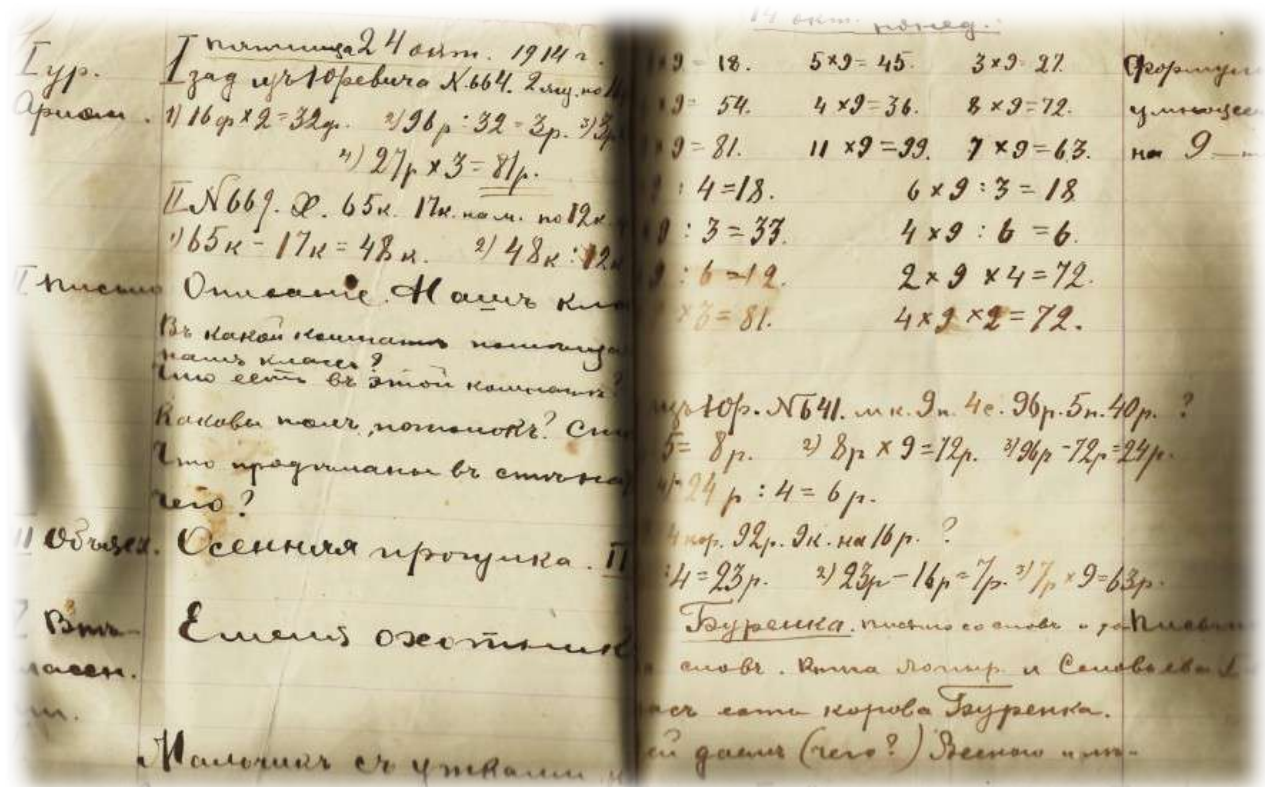 пятница 24 окт. 1914 г.
I ур. I зад. изъ Юревича N. 664. 2 ящ. по 16
Арием. 1) 16 ф × 2 = 32 ф. 2) 96 р : 32 = 3 р. 3) 3 р
4) 27 р × 3 = 81 р.
II N 669. Х. 65 к. 17 к. нам. по 12 к.
1) 65 к − 17 к = 48 к. 2) 48 к : 12 к
II письмо Описаніе. Нашъ кла
Въ какой комнатѣ помѣща
нашъ классъ?
Что есть въ этой комнатѣ?
Каковы полъ, потолокъ?
Что продѣланы въ стѣна
чего?
III Объясн. Осенняя прогулка. II
Внѣ Емеля охотник
классн.
Мальчикъ съ утками
14 окт. понед.
× 9 = 18. 5 × 9 = 45. 3 × 9 = 27. Формул
× 9 = 54. 4 × 9 = 36. 8 × 9 = 72. умножен
× 9 = 81. 11 × 9 = 99. 7 × 9 = 63. на 9
: 4 = 18. 6 × 9 : 3 = 18
9 : 3 = 33. 4 × 9 : 6 = 6.
9 : 6 = 12. 2 × 9 × 4 = 72.
× 3 = 81. 4 × 9 × 2 = 72.
изъ Юр. N 641. м к. 9 п. 4 с. 96 р. 5 п. 40 р. ?
5 = 8 р. 2) 8 р × 9 = 72 р. 3) 96 р − 72 р = 24 р.
4) 24 р : 4 = 6 р.
4 кор. 92 р. 9 к. на 16 р. ?
: 4 = 23 р. 2) 23 р − 16 р = 7 р. 3) 7 р × 9 = 63 р.
Буренка. письмо со словъ и
словъ. и Соловьева
асъ есть корова Буренка.
ей даемъ (чего?) Весною и лѣ-